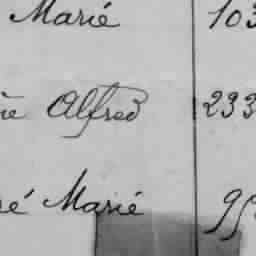 Marié 103
Alfred 233
ré Marié 99